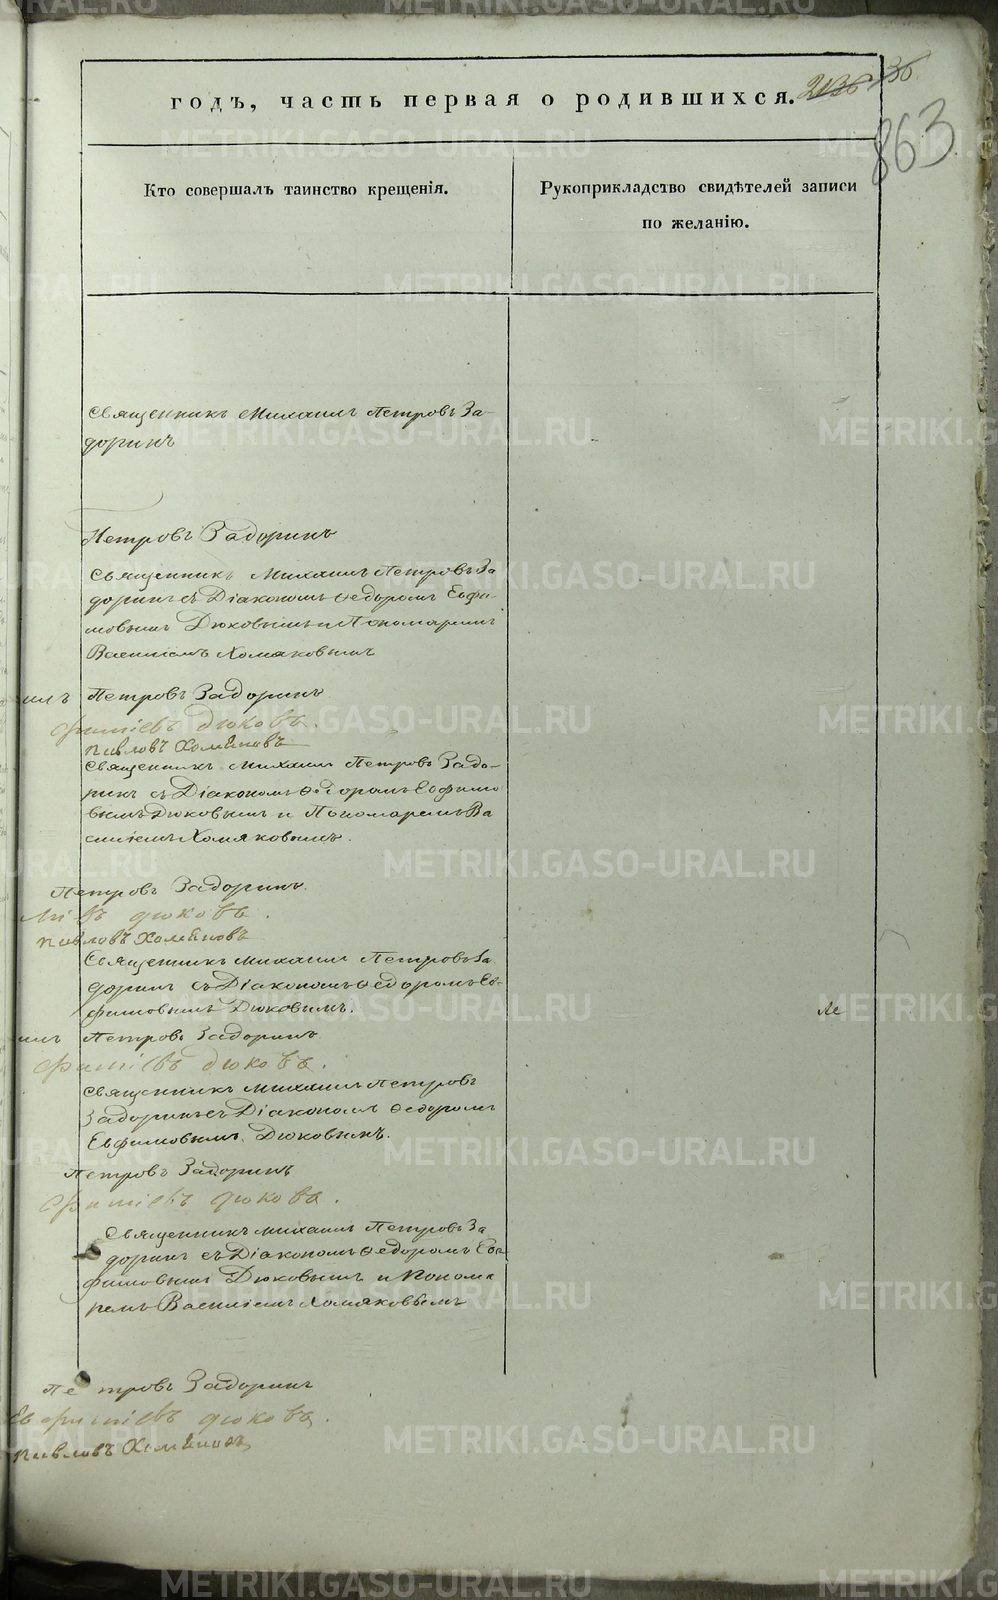 годъ, часть первая о родившихся.
36.
863
Кто совершалъ таинство крещенія.
Рукоприкладство свидѣтелей записи
по желанію.
Священникъ Михаилъ Петровъ За-
доринъ
Петровъ Задоринъ
Священникъ Михаилъ Петровъ За
доринъ съ Діакономъ Ѳедоромъ Евфи-
мовымъ Дюковымъ и Пономаремъ
Василіемъ Хомяковымъ
илъ Петровъ Задоринъ
фиміевъ Дюковъ.
Павловъ Хомяковъ
Священникъ Михаилъ Петровъ Задо-
ринъ съ Діакономъ Ѳедоромъ Евфимо
вымъ Дюковымъ и Пономаремъ Ва
силіемъ Хомяковымъ.
Петровъ Задоринъ.
міевъ Дюковъ.
Павловъ Хомяковъ
Священникъ Михаилъ Петровъ За
доринъ съ Діакономъ Ѳедоромъ Ев-
фимовымъ Дюковымъ.
илъ Петровъ Задоринъ
фиміевъ Дюковъ.
Священникъ Михаилъ Петровъ
Задоринъ съ Діакономъ Ѳедоромъ
Евфимовымъ Дюковымъ.
Петровъ Задоринъ
фиміевъ Дюковъ.
Священникъ Михаилъ Петровъ За
доринъ съ Діакономъ Ѳедоромъ Ев
фимовымъ Дюковымъ и Понома
ремъ Василіемъ Хомяковымъ
Петровъ Задоринъ
Евфиміевъ Дюковъ.
Павловъ Хомяковъ
METRIKI.GASO-URAL.RU